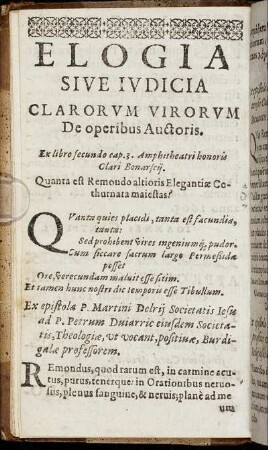 ELOGIA
SIVE IVDICIA
CLARORVM VIRORVM
De operibus Auctoris.
Ex libro secundo cap.3. Amphitheatri honoris
Clari Bonarscij.
Quanta est Remondo altioris Elegantiæ Co-
thurnata maiestas?
QVanta quies placidi, tanta est facundia,
tanta:
Sed prohibent vires ingeniumq; pudor.
Cum siccare sacrum largo Permessida
posset
Ore, verecundam maluit esse sitim.
Et tamen hunc nostri dic temporis esse Tibullum.
Ex epistola P. Martini Delrij Societatis Iesu
ad P. Petrum Duiarric eiusdem Societa-
tis, Theologiæ, vt vocant, positiuæ, Burdi-
galæ professorem.
REmondus, quod rarum est, in carmine acu-
tus, purus, tenerque: in Orationibus neruo-
sus, plenus sanguine, & neruis; planè ad me
vna